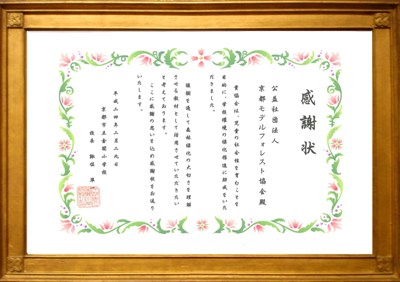 感謝状
公益社団法人
京都モデルフォレスト協会殿
貴協会は、児童の社会性を育むことを
目的に、学校環境の緑化推進に助成をいた
だきました。
植樹を通して森林緑化の大切さを理解
させる教材として活用させていただきたい
と考えております。
ここに感謝の思いを込め感謝状をお送り
いたします。
平成二四年二月二九日
京都市立金閣小学校
校長